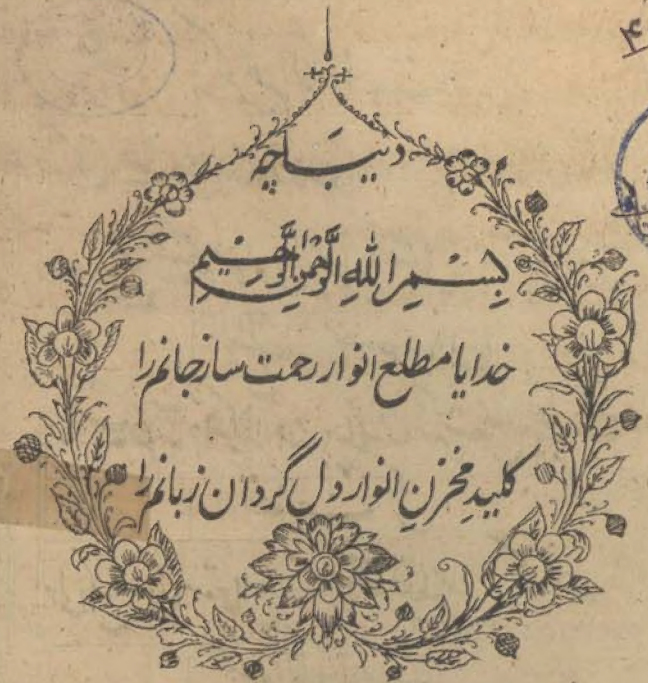 ۴
دیباچہ
بِسْمِ اللّٰهِ الرَّحْمٰنِ الرَّحِيْمِ
خدایا مطلع انوار رحمت ساز جانم را
کلیدِ مخزنِ انوار دل گردان زبانم را